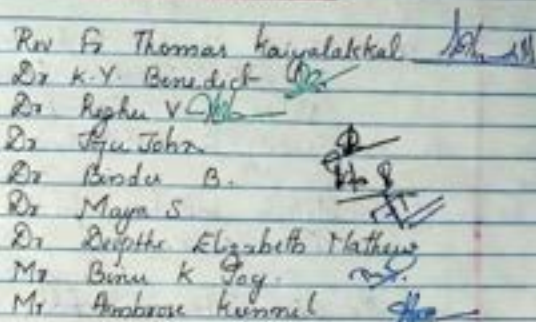 Rev Fr Thomas Kaiyalakkal
Dr K.Y. Benedict
Dr. Reghu V
Dr Jiju John
Dr Bindu B.
Dr Maya S
Dr Deepthi Elizabeth Mathew
Mr Binu K Joy.
Mr Ambrose Kunnil